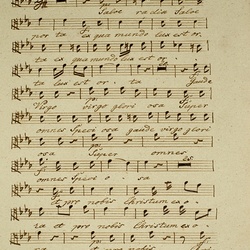 Salve radix Salve
por ta ex qua mundo lux est or
ta ex qua mundo lux est or
ta lux est or ta Gaude
Virgo virgo glori osa Super
omnes Speci osa gaude virgo glori
osa Super omnes
omnes Speci o sa
Et pro nobis Christum exo
ra et pro nobis Christum exo
ra nobis